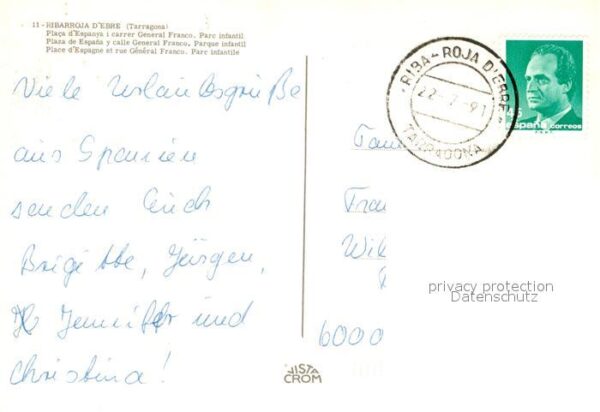 11 - RIBARROJA D'EBRE (Tarragona)
Plaça d'Espanya i carrer General Franco. Parc infantil
Plaza de España y calle General Franco, Parque infantil
Place d'Espagne et rue Général Franco. Parc infantile
Viele Urlaubsgrüße
aus Spanien
senden Euch
Brigitte, Jürgen,
Jennifer und
Christina!
RIBA-ROJA D'EBRE
22-7-91
TARRAGONA
45
España correos
Fam
Fra
Wil
6000
privacy protection
Datenschutz
VISTA
CROM